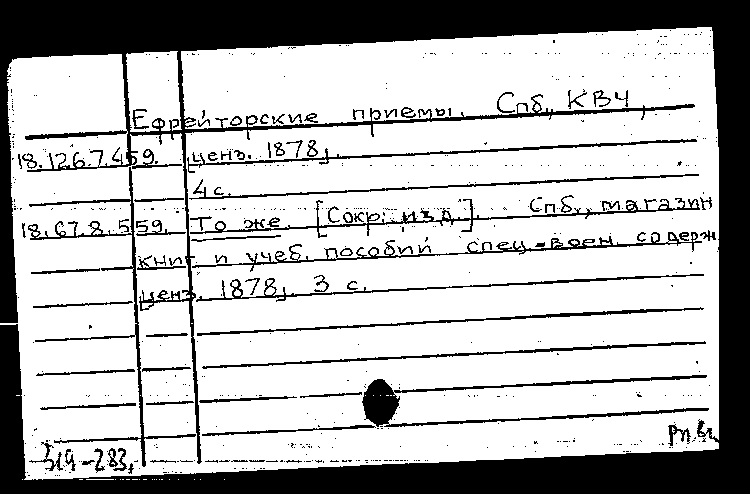 Ефрейторские приемы. Спб., КВЧ,
18.126.7.459. ценз. 1878].
4 с.
18.67.8.559. То же. [Сокр. изд.]. Спб., магазин
книг и учеб. пособий спец-воен. содерж
ценз. 1878]. 3 с.
319-283,